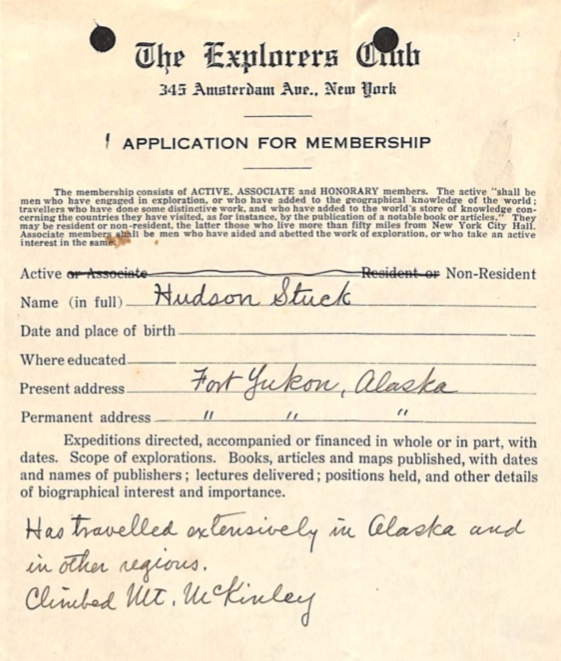 The Explorers Club
345 Amsterdam Ave., New York
APPLICATION FOR MEMBERSHIP
The membership consists of ACTIVE, ASSOCIATE and HONORARY members. The active "shall be
men who have engaged in exploration, or who have added to the geographical knowledge of the world;
travellers who have done some distinctive work, and who have added to the world's store of knowledge con-
cerning the countries they have visited, as for instance, by the publication of a notable book or articles." They
may be resident or non-resident, the latter those who live more than fifty miles from New York City Hall.
Associate members shall be men who have aided and abetted the work of exploration, or who take an active
interest in the same.
Active or Associate Resident or Non-Resident
Name (in full) Hudson Stuck
Date and place of birth
Where educated
Present address Fort Yukon, Alaska
Permanent address " " "
Expeditions directed, accompanied or financed in whole or in part, with
dates. Scope of explorations. Books, articles and maps published, with dates
and names of publishers; lectures delivered; positions held, and other details
of biographical interest and importance.
Has travelled extensively in Alaska and
in other regions.
Climbed Mt. McKinley